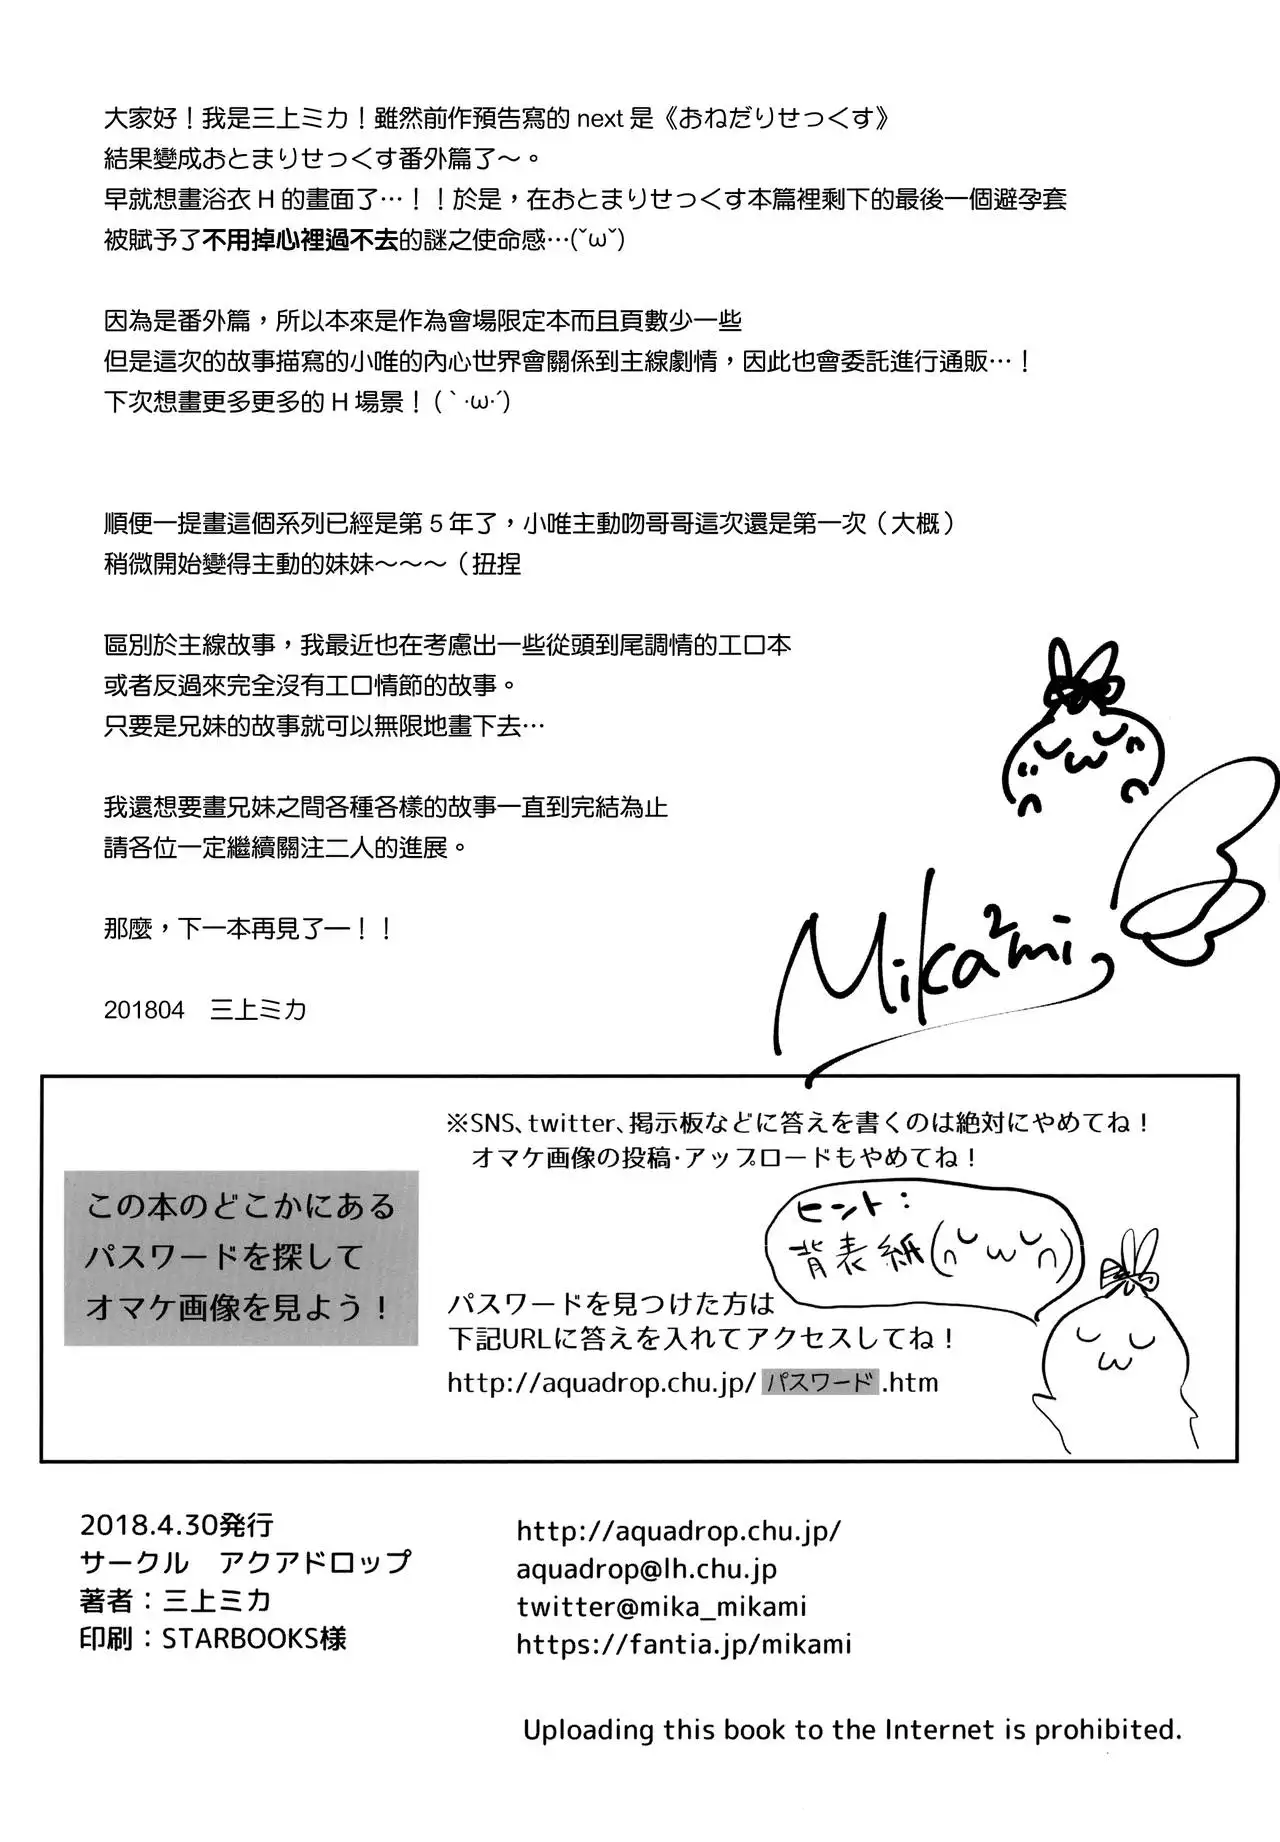 大家好！我是三上ミカ！雖然前作預告寫的 next 是《おねだりせっくす》
結果變成おとまりせっくす番外篇了～。
早就想畫浴衣 H 的畫面了…！！於是，在おとまりせっくす本篇裡剩下的最後一個避孕套
被賦予了不用掉心裡過不去的謎之使命感…(˘ω˘)
因為是番外篇，所以本來是作為會場限定本而且頁數少一些
但是這次的故事描寫的小唯的內心世界會關係到主線劇情，因此也會委託進行通販…！
下次想畫更多更多的 H 場景！(｀·ω·´)
順便一提畫這個系列已經是第 5 年了，小唯主動吻哥哥這次還是第一次（大概）
稍微開始變得主動的妹妹～～～（扭捏
區別於主線故事，我最近也在考慮出一些從頭到尾調情的工口本
或者反過來完全沒有工口情節的故事。
只要是兄妹的故事就可以無限地畫下去…
我還想要畫兄妹之間各種各樣的故事一直到完結為止
請各位一定繼續關注二人的進展。
那麼，下一本再見了ー！！
201804　三上ミカ
Mika²mi
※SNS、twitter、掲示板などに答えを書くのは絶対にやめてね！
オマケ画像の投稿・アップロードもやめてね！
この本のどこかにある
パスワードを探して
オマケ画像を見よう！
ヒント：
背表紙
パスワードを見つけた方は
下記URLに答えを入れてアクセスしてね！
http://aquadrop.chu.jp/ パスワード .htm
2018.4.30発行
サークル　アクアドロップ
著者：三上ミカ
印刷：STARBOOKS様
http://aquadrop.chu.jp/
aquadrop@lh.chu.jp
twitter@mika_mikami
https://fantia.jp/mikami
Uploading this book to the Internet is prohibited.